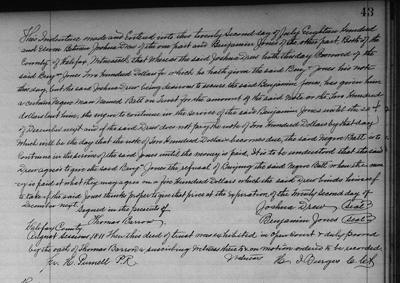 43
This Indenture made and Entered into this twenty Second day of July Eighteen Hundred
and Eleven Between Joshua Drew of the one part and Benjamin Jones of the other part, Both of the
County of Halifax Witnesseth that Whereas the said Joshua Drew hath this day Borrowed of the
said Benj. Jones Two Hundred Dollars for which he hath given the said Benj. Jones his note
this day, but the said Joshua Drew being desirous to secure the said Benjamin Jones, has given him
a certain Negro Man Named Batt on Trust for the amount of the said Note or the Two Hundred
dollars but him, the negro to continue in the service of the said Benjamin Jones until the 22
of December next and if the said Drew does not pay the note of Two Hundred Dollars by that day
Which will be the day that the note of Two Hundred Dollars becomes due, the said Negro Batt is to
Continue in the service of the said Jones until the money is paid. It is to be understood that the said
Drew agree to give the said Benj. Jones the refusal of Buying the said Negro Batt when the
money is paid at what they may agree on a five Hundred Dollars which the said Drew binds himself
to take if the said Jones thinks proper to give that price at the expiration of the twenty second day of
December next.
Signed in the presents of
Joshua Drew Seal
Thomas Barrow
Benjamin Jones Seal
Halifax County
August Sessions 1811 Then this deed of trust was exhibited in open Court & duly proved
by the oath of Thomas Barrow a subscribing Witness thereto & on motion ordered to be recorded
H. Punnell P.R.